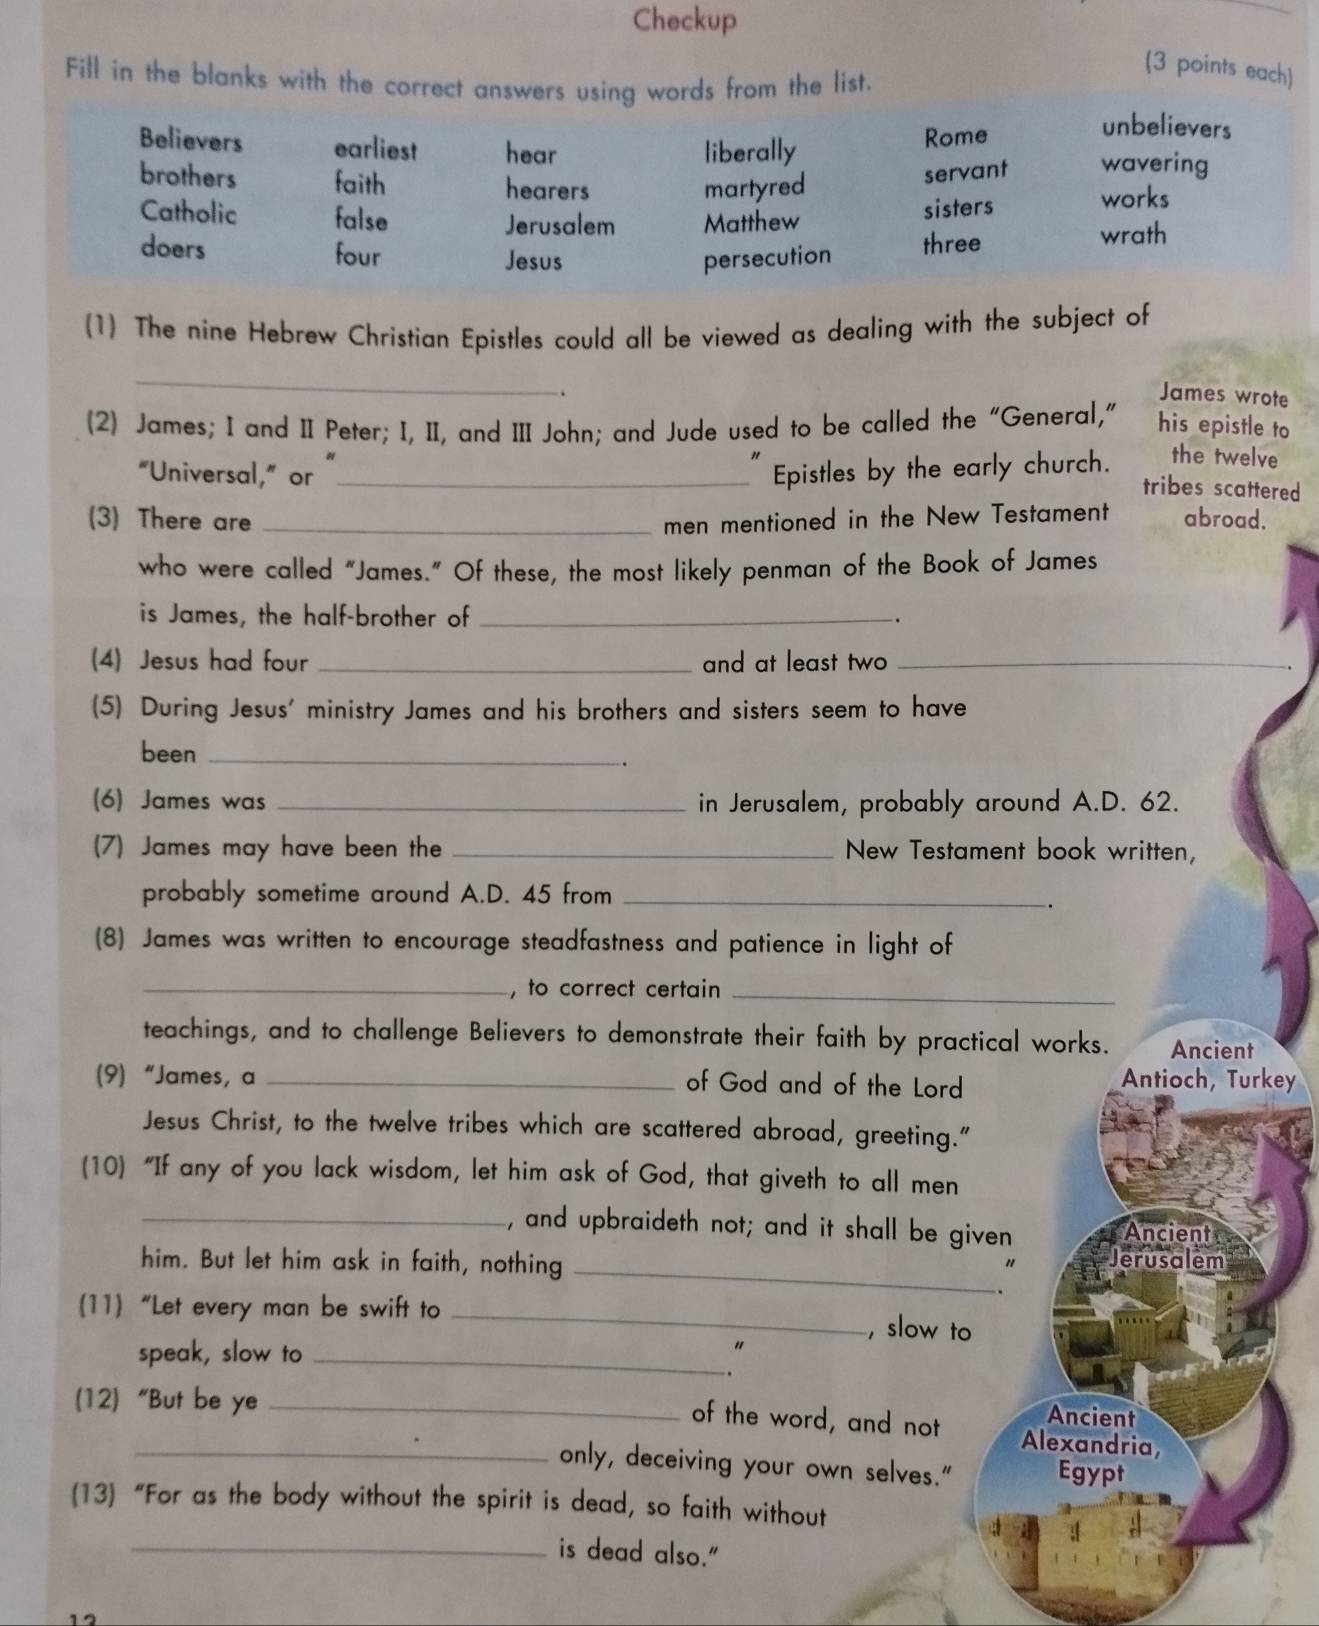 Checkup
Fill in the blanks with the correct answers using words from the list.
(3 points each)
Believers earliest hear liberally Rome unbelievers
brothers faith hearers martyred servant wavering
Catholic false Jerusalem Matthew sisters works
doers four Jesus persecution three wrath
(1) The nine Hebrew Christian Epistles could all be viewed as dealing with the subject of
____________.
(2) James; I and II Peter; I, II, and III John; and Jude used to be called the “General,”
“Universal,” or “____________” Epistles by the early church.
(3) There are ____________ men mentioned in the New Testament
who were called “James.” Of these, the most likely penman of the Book of James
is James, the half-brother of ____________.
(4) Jesus had four ____________ and at least two ____________.
(5) During Jesus’ ministry James and his brothers and sisters seem to have
been ____________.
(6) James was ____________ in Jerusalem, probably around A.D. 62.
(7) James may have been the ____________ New Testament book written,
probably sometime around A.D. 45 from ____________.
(8) James was written to encourage steadfastness and patience in light of
____________, to correct certain ____________
teachings, and to challenge Believers to demonstrate their faith by practical works.
(9) “James, a ____________ of God and of the Lord
Jesus Christ, to the twelve tribes which are scattered abroad, greeting.”
(10) “If any of you lack wisdom, let him ask of God, that giveth to all men
____________, and upbraideth not; and it shall be given
him. But let him ask in faith, nothing ____________.”
(11) “Let every man be swift to ____________, slow to
speak, slow to ____________.”
(12) “But be ye ____________ of the word, and not
____________ only, deceiving your own selves.”
(13) “For as the body without the spirit is dead, so faith without
____________ is dead also.”
James wrote
his epistle to
the twelve
tribes scattered
abroad.
Ancient
Antioch, Turkey
Ancient
Jerusalem
Ancient
Alexandria,
Egypt